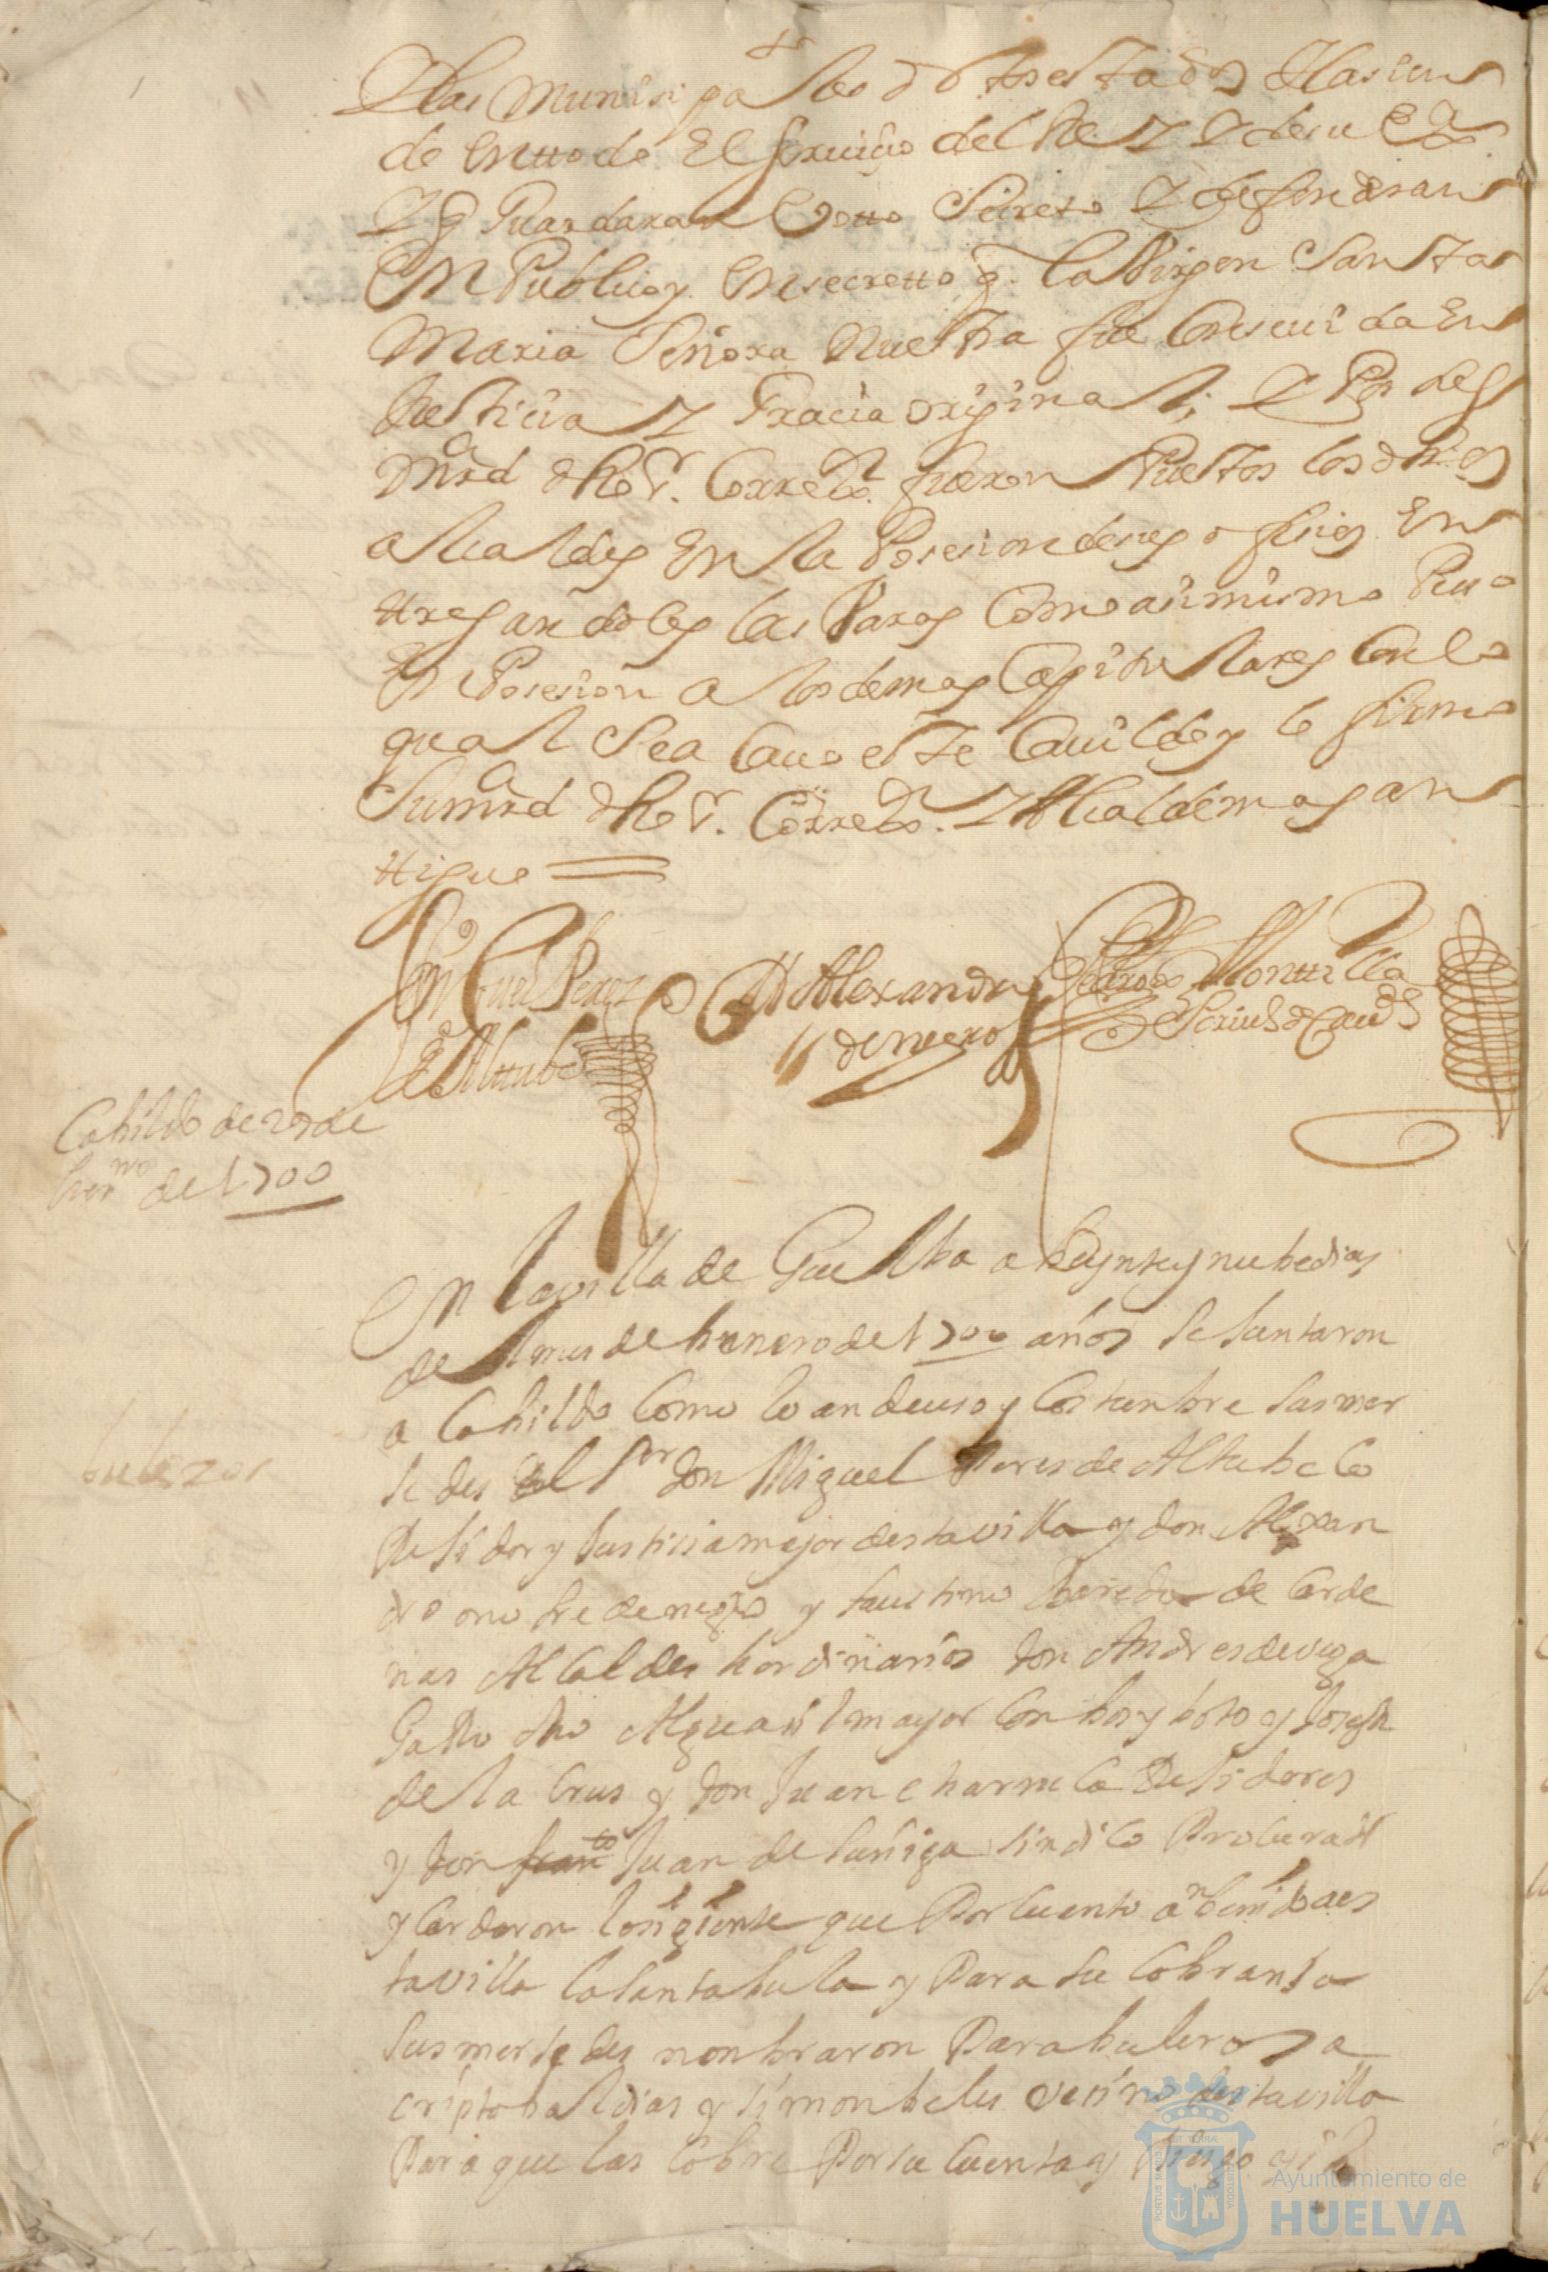 Y las Munisipa les de Estado Y hasien
de en tto do El serviçio del Rei Y de su Exª
Y q Guardaran Votto Secreto Y defenderan
En Publico y En secretto q. la Virgen Santa
Maria Señora Nuestra fue Consevida En
Justicia Y Gracia original; Y Por dcha
mrd dho Sr. Corredor fueron Puestos los dhos
alcaldes En la Posesion de sus ofisios En
ttregandoles las Varas Como asimismo Puso
En Posesion a los demas Capitulares Con lo
qual Se a cavo este Cavildo y lo firmo
Su mrd dho Sr. Corredor. Y Alcalde mas an
ttiguo =
Miguel Perez
de Alttube
D Alexandro
de negro
Pedro de Monttilla
Scrivº de Cavdº
Cabildo de 29 de
henº de 1700
En la villa de Guelba a beynte y nuebe dias
del mes de henero de 1700 años se Juntaron
a Cabildo Como lo an de uso y Costunbre sus mer
sedes el Sor don Miguel Peres de Altube Co
Residor y Justisia mayor desta villa y don Alexan
dro onofre de negro y faustino de Carde
nas Alcaldes hordinarios don Andres de vega
Gallo Alguasil mayor Con bos y boto y Joseph
de la Crus y don Juan charneco Residores
y don Juan de suñiga sindico Procurador
y acordaron lo siguiente que Por Cuanto an benido a es
ta villa la santa bula y Para su Cobransa
sus mersedes nonbraron Para buleros a
criptobal dias y simon beles vesino desta villa
Para que las Cobre Por su Cuenta y Riesgo
bulezos
Ayuntamiento de
HUELVA